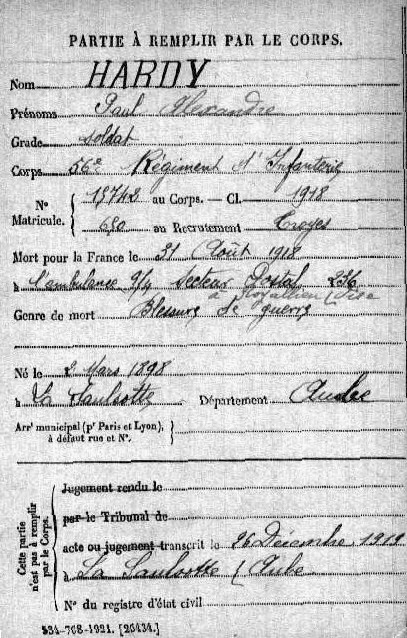 PARTIE À REMPLIR PAR LE CORPS.
Nom HARDY
Prénoms Paul Alexandre
Grade soldat
Corps 56e Régiment d'Infanterie
N° Matricule. { 15742 au Corps. — Cl. 1918
650 au Recrutement Troyes
Mort pour la France le 31 Août 1918
à l'ambulance 9/4 secteur Postal 236
à Royallieu (Oise
Genre de mort Blessure de guerre
Né le 2 Mars 1898
à La Saulsotte Département Aube
Arrt municipal (pr Paris et Lyon), à défaut rue et N°. }
Cette partie n'est pas à remplir par le Corps.
Jugement rendu le
par le Tribunal de
acte ou jugement transcrit le 26 Décembre 1919
à La Saulsotte (Aube
N° du registre d'état civil
534-708-1921. [26434.]